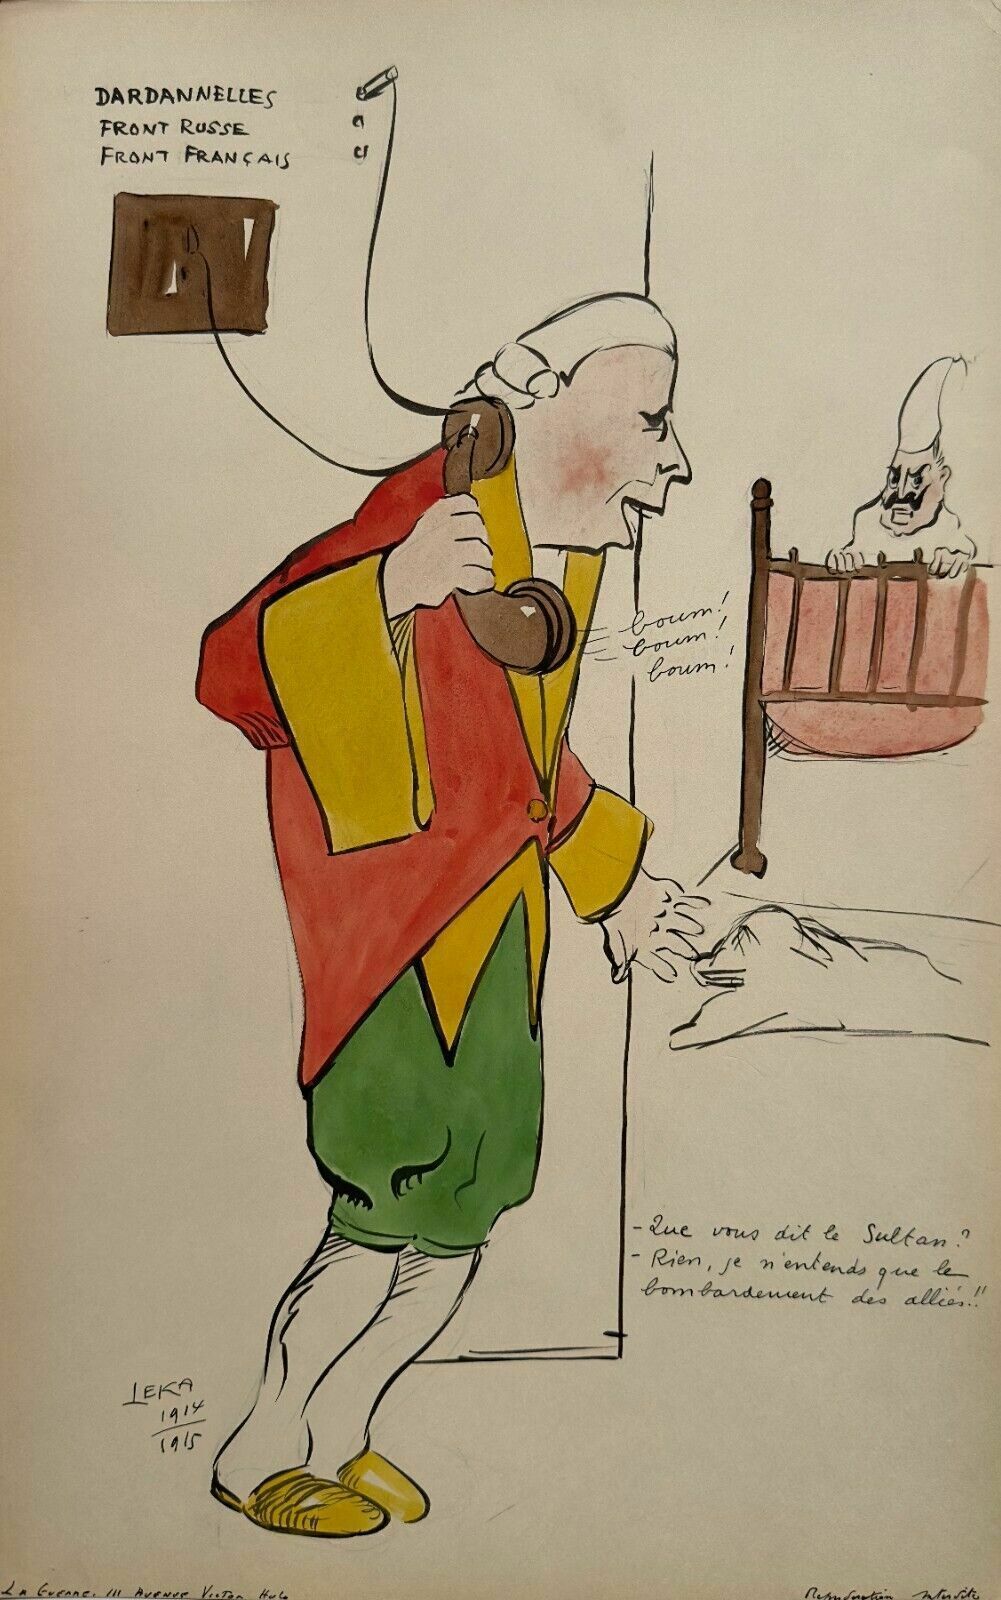 DARDANNELLES
FRONT RUSSE
FRONT FRANÇAIS
boum!
boum!
boum!
- Que vous dit le Sultan?
- Rien, je n'entends que le
bombardement des alliés!!
LEKA
1914
1915
La Guerre. 111 Avenue Victor Hugo
Reproduction interdite